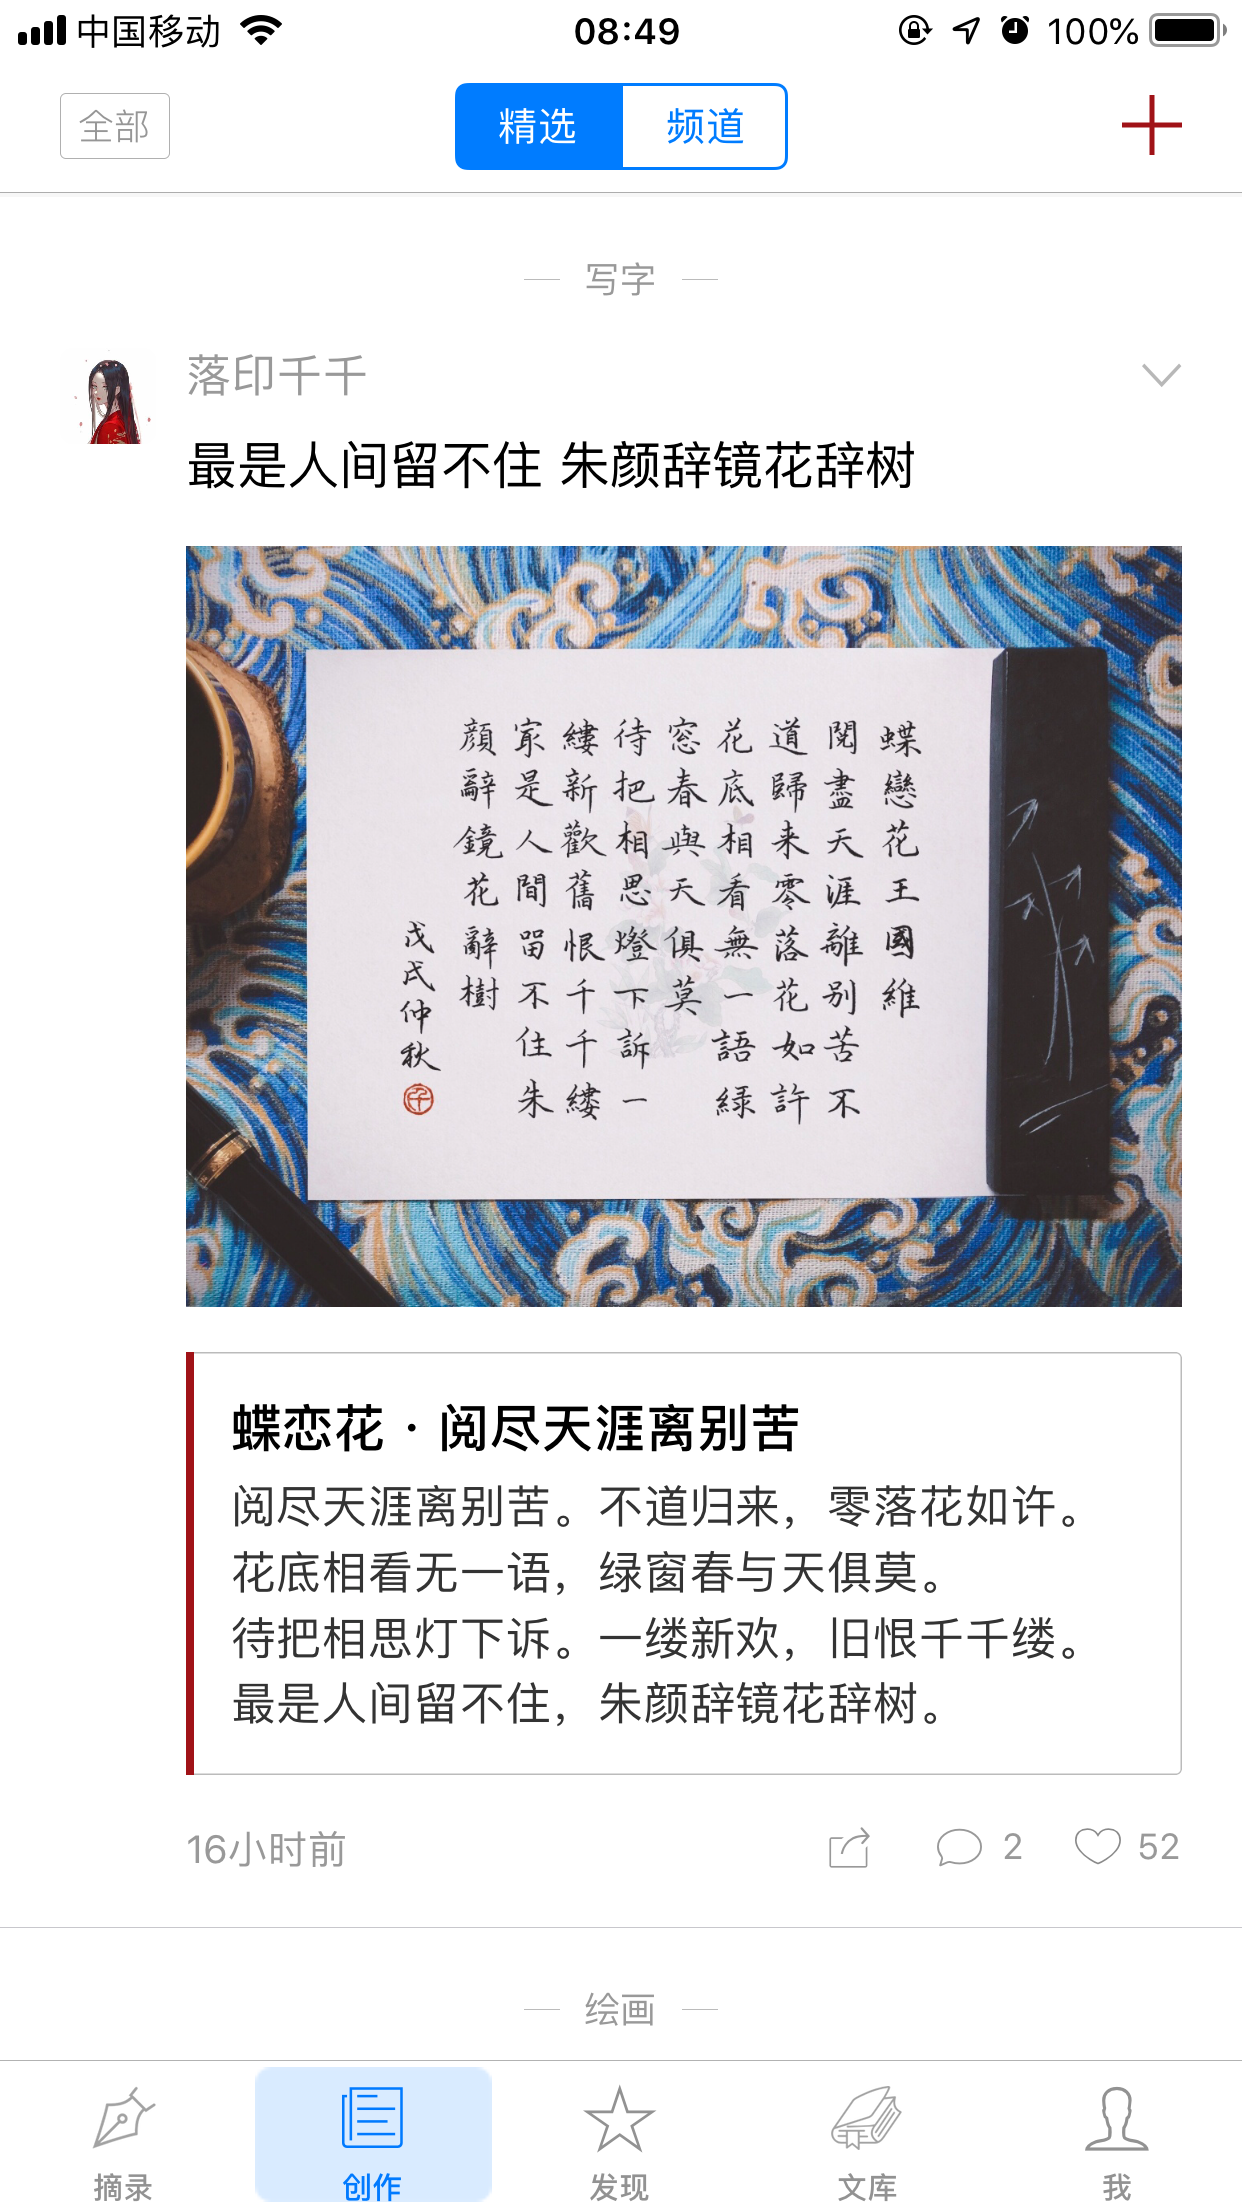 中国移动
08:49
100%
全部
精选
频道
写字
落印千千
最是人间留不住 朱颜辞镜花辞树
蝶戀花王國維
閱盡天涯離别苦不
道歸来零落花如許
花底相看無一語緑
窓春與天俱莫
待把相思燈下訴一
縷新歡舊恨千千縷
家是人間留不住朱
顔辭鏡花辭樹
戊戌仲秋
蝶恋花 · 阅尽天涯离别苦
阅尽天涯离别苦。不道归来，零落花如许。
花底相看无一语，绿窗春与天俱莫。
待把相思灯下诉。一缕新欢，旧恨千千缕。
最是人间留不住，朱颜辞镜花辞树。
16小时前
2
52
绘画
摘录
创作
发现
文库
我